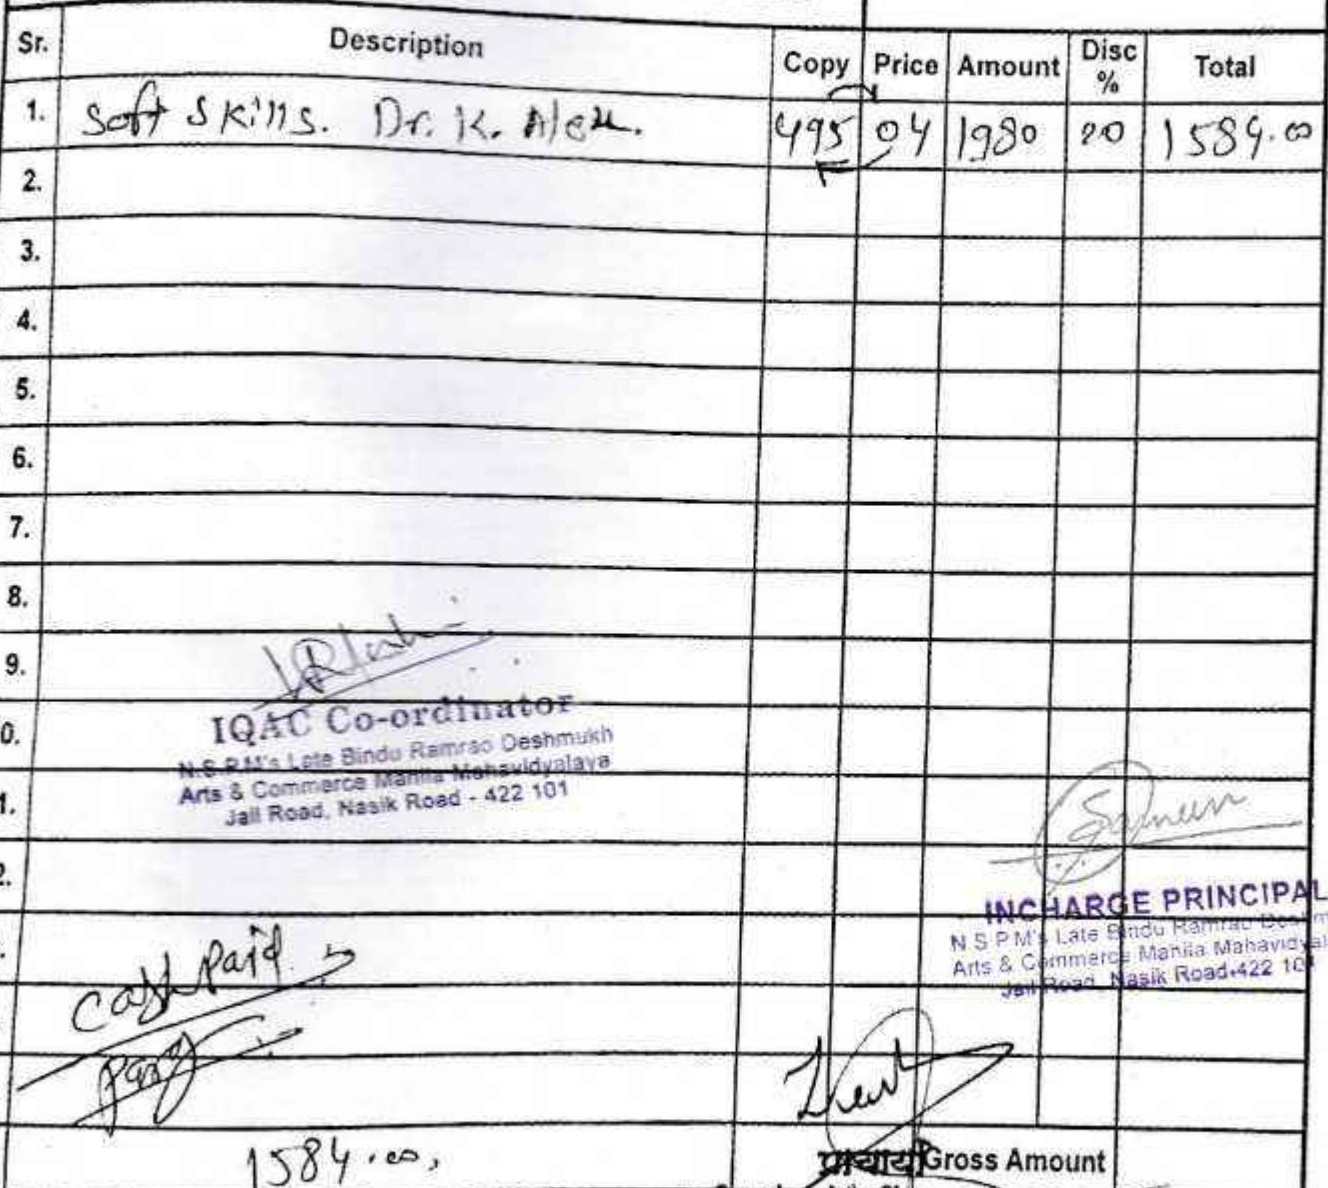 Sr. Description Copy Price Amount Disc % Total
1. Soft Skills. Dr. K. Alex. 495 04 1980 20 1584.00
2.
3.
4.
5.
6.
7.
8.
9.
0.
1.
2.
IQAC Co-ordinator
N.S.P.M's Late Bindu Ramrao Deshmukh
Arts & Commerce Mahila Mahavidyalaya
Jail Road, Nasik Road - 422 101
INCHARGE PRINCIPAL
N.S.P.M's Late Bindu Ramrao
Arts & Commerce Mahila
Jail Road, Nasik Road-422 101
Cash paid
1584.00,
Gross Amount